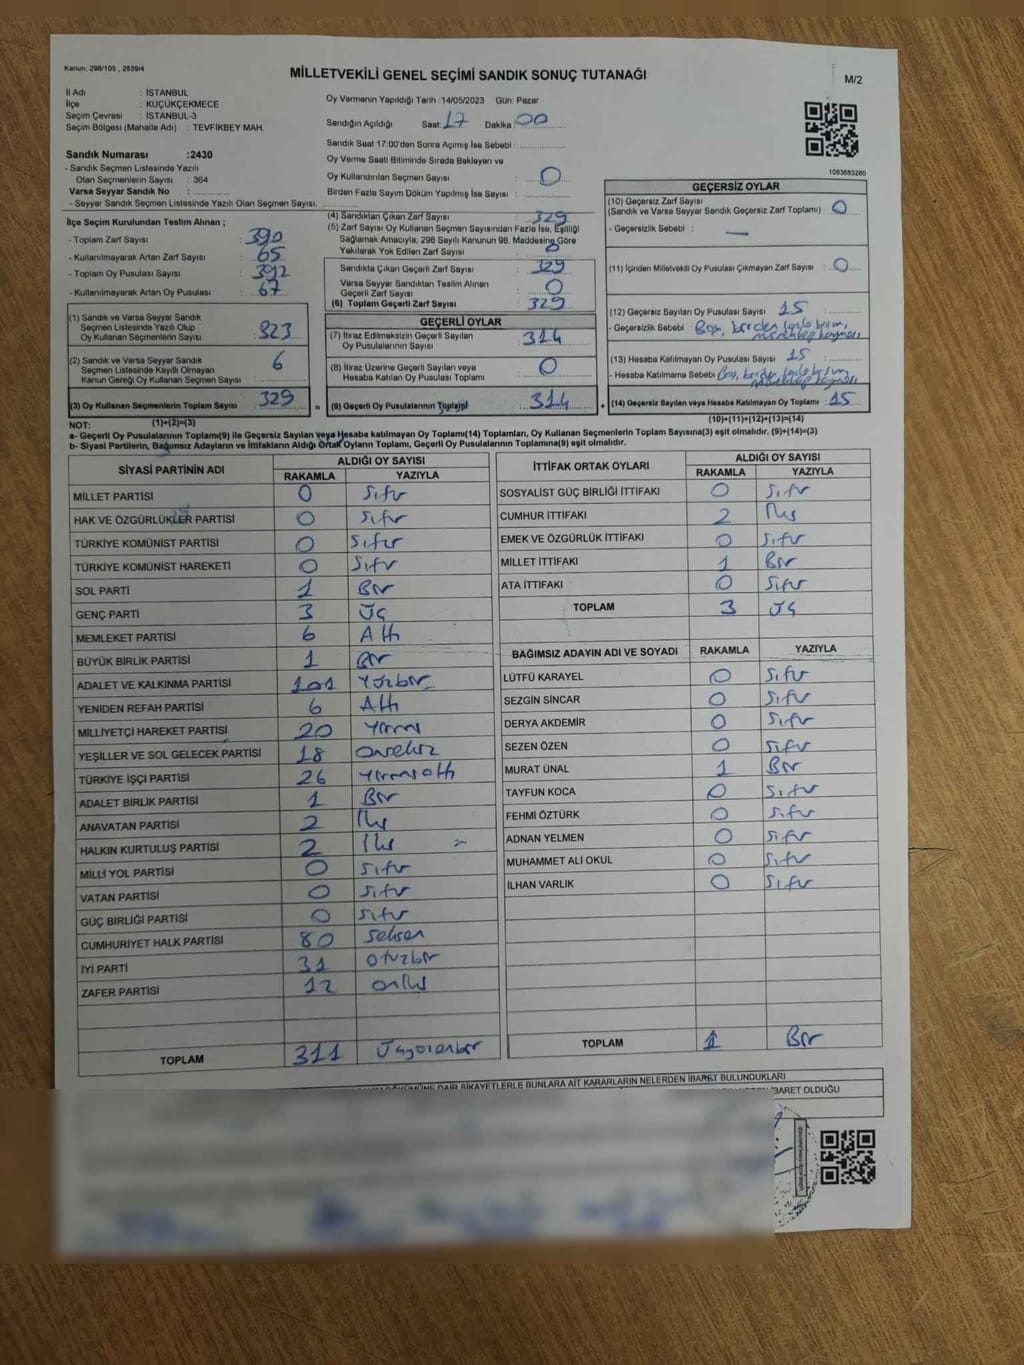 Kanun: 298/105 , 2839/4
MİLLETVEKİLİ GENEL SEÇİMİ SANDIK SONUÇ TUTANAĞI
M/2
İl Adı : İSTANBUL
İlçe : KÜÇÜKÇEKMECE
Seçim Çevresi : İSTANBUL-3
Seçim Bölgesi (Mahalle Adı) : TEVFİKBEY MAH.
Oy Vermenin Yapıldığı Tarih :14/05/2023 Gün: Pazar
Sandığın Açıldığı Saat: 17 Dakika: 00
Sandık Saat 17:00'den Sonra Açılmış İse Sebebi:
Oy Verme Saati Bitiminde Sırada Bekleyen ve
Oy Kullandırılan Seçmen Sayısı : 0
Birden Fazla Sayım Döküm Yapılmış İse Sayısı :
Sandık Numarası :2430
- Sandık Seçmen Listesinde Yazılı
Olan Seçmenlerin Sayısı : 364
Varsa Seyyar Sandık No :
- Seyyar Sandık Seçmen Listesinde Yazılı Olan Seçmen Sayısı:
1083683280
İlçe Seçim Kurulundan Teslim Alınan ;
- Toplam Zarf Sayısı : 390
- Kullanılmayarak Artan Zarf Sayısı : 65
- Toplam Oy Pusulası Sayısı : 392
- Kullanılmayarak Artan Oy Pusulası : 67
(1) Sandık ve Varsa Seyyar Sandık
Seçmen Listesinde Yazılı Olup
Oy Kullanan Seçmenlerin Sayısı : 323
(2) Sandık ve Varsa Seyyar Sandık
Seçmen Listesinde Kayıtlı Olmayan
Kanun Gereği Oy Kullanan Seçmen Sayısı : 6
(3) Oy Kullanan Seçmenlerin Toplam Sayısı : 329
(4) Sandıktan Çıkan Zarf Sayısı : 329
(5) Zarf Sayısı Oy Kullanan Seçmen Sayısından Fazla İse, Eşitliği
Sağlamak Amacıyla, 298 Sayılı Kanunun 98. Maddesine Göre
Yakılarak Yok Edilen Zarf Sayısı : 0
Sandıkta Çıkan Geçerli Zarf Sayısı : 329
Varsa Seyyar Sandıktan Teslim Alınan
Geçerli Zarf Sayısı : 0
(6) Toplam Geçerli Zarf Sayısı : 329
GEÇERLİ OYLAR
(7) İtiraz Edilmeksizin Geçerli Sayılan
Oy Pusulalarının Sayısı : 314
(8) İtiraz Üzerine Geçerli Sayılan veya
Hesaba Katılan Oy Pusulası Toplamı : 0
= (9) Geçerli Oy Pusulalarının Toplamı : 314
GEÇERSİZ OYLAR
(10) Geçersiz Zarf Sayısı
(Sandık ve Varsa Seyyar Sandık Geçersiz Zarf Toplamı) : 0
- Geçersizlik Sebebi : —
(11) İçinden Milletvekili Oy Pusulası Çıkmayan Zarf Sayısı : 0
(12) Geçersiz Sayılan Oy Pusulası Sayısı : 15
- Geçersizlik Sebebi : Boş, birden fazla basım,
(13) Hesaba Katılmayan Oy Pusulası Sayısı : 15
- Hesaba Katılmama Sebebi : Boş, birden fazla basım
+ (14) Geçersiz Sayılan veya Hesaba Katılmayan Oy Toplamı : 15
NOT: (1)+(2)=(3) (10)+(11)+(12)+(13)=(14)
a- Geçerli Oy Pusulalarının Toplamı(9) ile Geçersiz Sayılan veya Hesaba katılmayan Oy Toplamı(14) Toplamları, Oy Kullanan Seçmenlerin Toplam Sayısına(3) eşit olmalıdır. (9)+(14)=(3)
b- Siyasi Partilerin, Bağımsız Adayların ve İttifakların Aldığı Ortak Oyların Toplamı, Geçerli Oy Pusulalarının Toplamına(9) eşit olmalıdır.
SİYASİ PARTİNİN ADI ALDIĞI OY SAYISI
RAKAMLA YAZIYLA
MİLLET PARTİSİ 0 Sıfır
HAK VE ÖZGÜRLÜKLER PARTİSİ 0 Sıfır
TÜRKİYE KOMÜNİST PARTİSİ 0 Sıfır
TÜRKİYE KOMÜNİST HAREKETİ 0 Sıfır
SOL PARTİ 1 Bir
GENÇ PARTİ 3 Üç
MEMLEKET PARTİSİ 6 Altı
BÜYÜK BİRLİK PARTİSİ 1 Bir
ADALET VE KALKINMA PARTİSİ 101 Yüzbir
YENİDEN REFAH PARTİSİ 6 Altı
MİLLİYETÇİ HAREKET PARTİSİ 20 Yirmi
YEŞİLLER VE SOL GELECEK PARTİSİ 18 Onsekiz
TÜRKİYE İŞÇİ PARTİSİ 26 Yirmialtı
ADALET BİRLİK PARTİSİ 1 Bir
ANAVATAN PARTİSİ 2 İki
HALKIN KURTULUŞ PARTİSİ 2 İki
MİLLİ YOL PARTİSİ 0 Sıfır
VATAN PARTİSİ 0 Sıfır
GÜÇ BİRLİĞİ PARTİSİ 0 Sıfır
CUMHURİYET HALK PARTİSİ 80 Seksen
İYİ PARTİ 31 Otuzbir
ZAFER PARTİSİ 12 oniki
TOPLAM 311 Üçyüzonbir
İTTİFAK ORTAK OYLARI ALDIĞI OY SAYISI
RAKAMLA YAZIYLA
SOSYALİST GÜÇ BİRLİĞİ İTTİFAKI 0 Sıfır
CUMHUR İTTİFAKI 2 İki
EMEK VE ÖZGÜRLÜK İTTİFAKI 0 Sıfır
MİLLET İTTİFAKI 1 Bir
ATA İTTİFAKI 0 Sıfır
TOPLAM 3 Üç
BAĞIMSIZ ADAYIN ADI VE SOYADI RAKAMLA YAZIYLA
LÜTFÜ KARAYEL 0 Sıfır
SEZGİN SİNCAR 0 Sıfır
DERYA AKDEMİR 0 Sıfır
SEZEN ÖZEN 0 Sıfır
MURAT ÜNAL 1 Bir
TAYFUN KOCA 0 Sıfır
FEHMİ ÖZTÜRK 0 Sıfır
ADNAN YELMEN 0 Sıfır
MUHAMMET ALİ OKUL 0 Sıfır
İLHAN VARLIK 0 Sıfır
TOPLAM 1 Bir
DÖKÜMÜNE DAİR ŞİKAYETLERLE BUNLARA AİT KARARLARIN NELERDEN İBARET BULUNDUKLARI
İBARET OLDUĞU